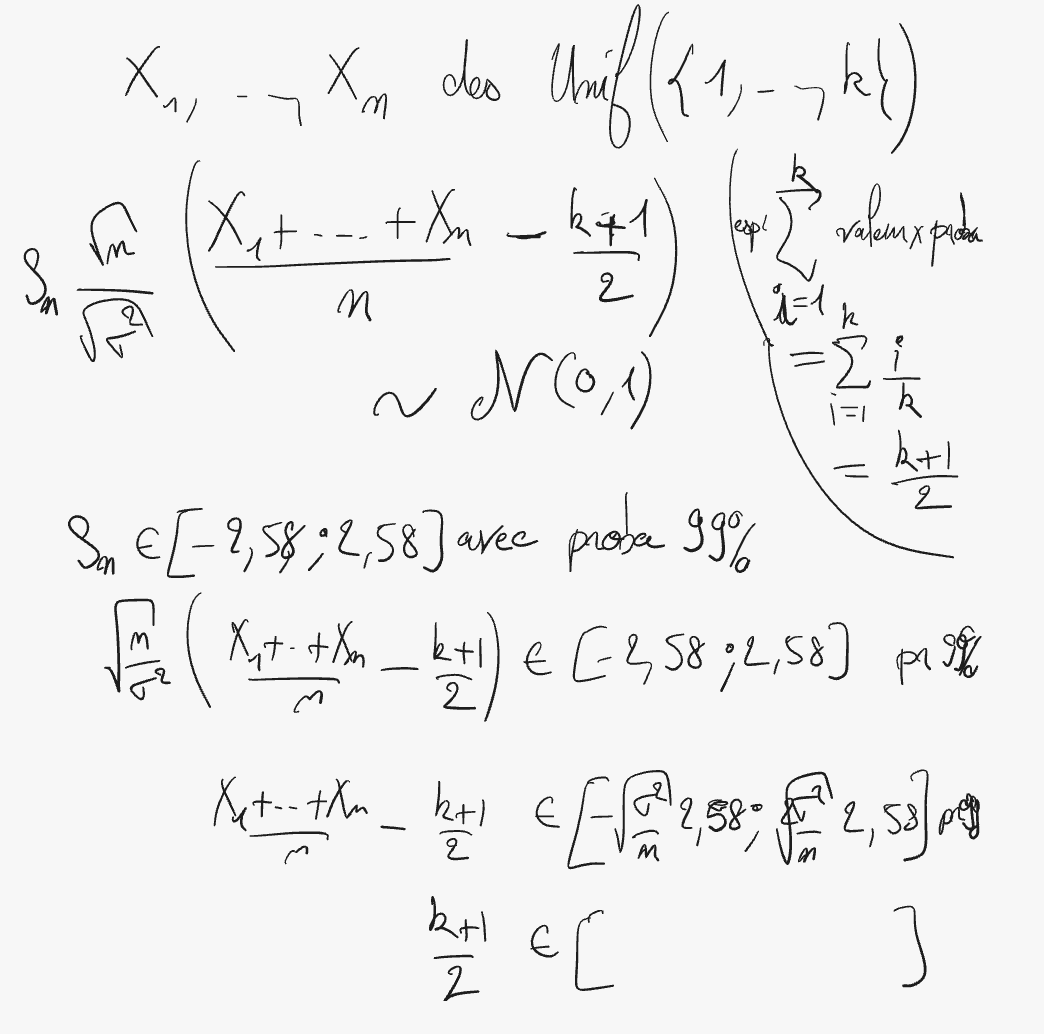 X₁, ..., Xₙ des Unif({1, .., k})
Sₙ √n/√σ² ( (X₁ + .... + Xₙ)/n − (k+1)/2 )
~ N(0,1)
esp: ∑_{i=1}^{k} valeur x proba
= ∑_{i=1}^{k} i/k
= (k+1)/2
Sₙ ∈ [−2,58 ; 2,58] avec proba 99%
√(n/σ²) ( (X₁+..+Xₙ)/n − (k+1)/2 ) ∈ [−2,58 ; 2,58] pr 99%
(X₁+..+Xₙ)/n − (k+1)/2 ∈ [−√(σ²/n) 2,58 ; √(σ²/n) 2,58] pr 99
(k+1)/2 ∈ [ ]